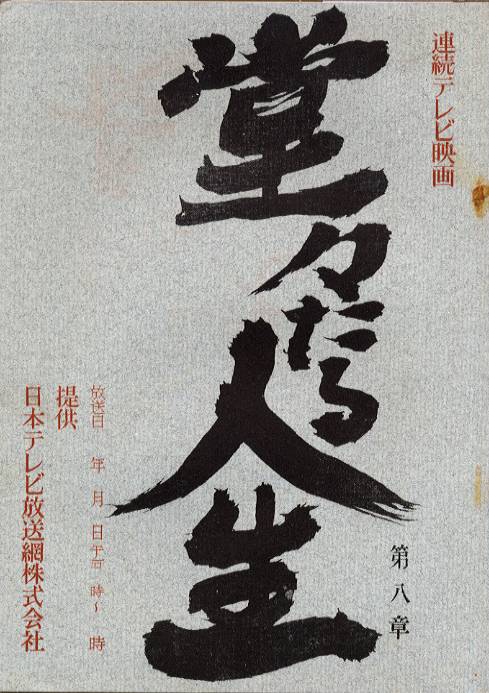 連続テレビ映画
堂々たる人生
第八章
放送日 年 月 日 時~ 時
提供
日本テレビ放送網株式会社